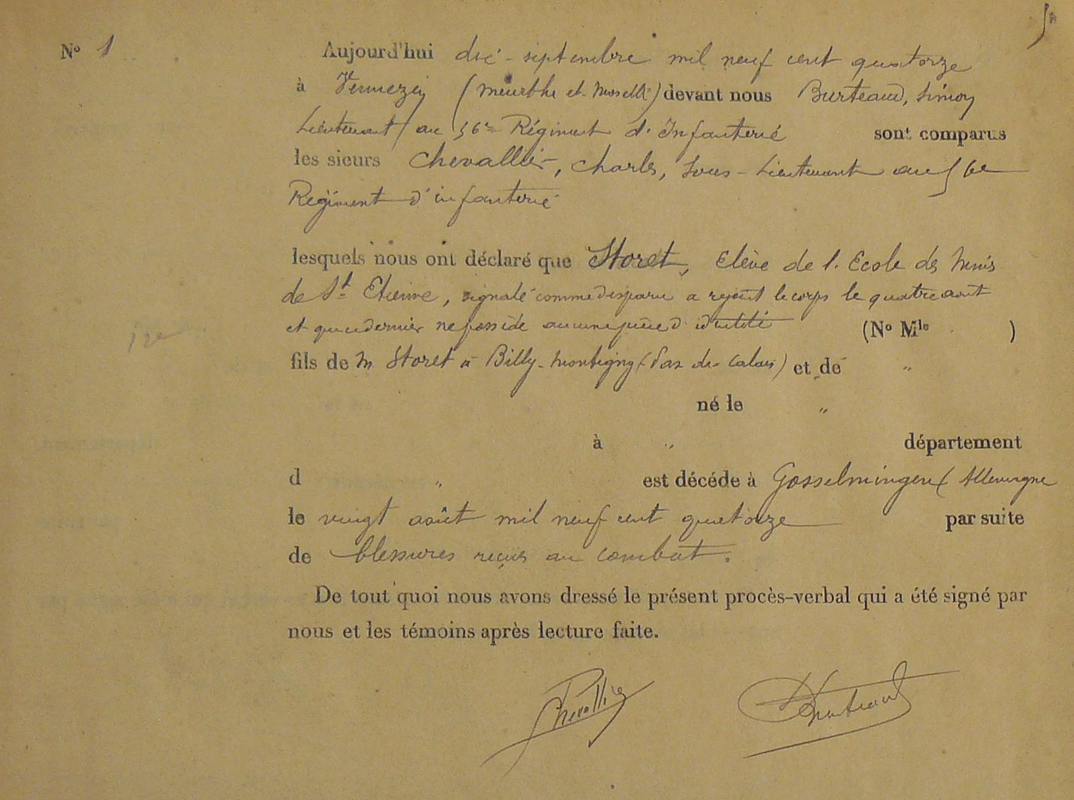 N° 1
Aujourd'hui dix septembre mil neuf cent quatorze
à (Meurthe et Moselle) devant nous Burteaud, Simon
Lieutenant au 56e Régiment d'Infanterie sont comparus
les sieurs Chevallier, Charles, Sous-Lieutenant au 56e
Régiment d'infanterie
lesquels nous ont déclaré que Storet, Elève de l'Ecole des Mines
de St Etienne, signalé comme disparu a rejoint le corps le quatre aout
et que ce dernier ne possède aucune pièce d'identité (N° Mle )
fils de M Storet à Billy-Montigny (Pas de Calais) et de "
né le "
à " département
d " est décédé à Gosselmingen (Allemagne
le vingt août mil neuf cent quatorze par suite
de blessures reçues au combat.
De tout quoi nous avons dressé le présent procès-verbal qui a été signé par
nous et les témoins après lecture faite.
Chevallier Burteaud